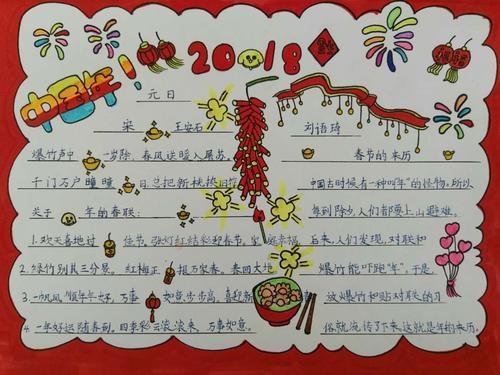 中国年!
2018
元日
宋 王安石
爆竹声中一岁除,春风送暖入屠苏.
千门万户曈曈日,总把新桃换旧符
关于 年的春联:
1.欢天喜地过佳节,张灯结彩迎春节,家庭幸福
2.绿竹别其三分景,红梅正报万家春,春回大地
3.一帆风顺年年好,万事如意步步高,喜迎新
4.一年好运随春到,四季彩云滚滚来,万事如意.
刘语琦
春节的来历
中国古时候有一种叫"年"的怪物,所以
每到除夕,人们都要上山避难.
后来,人们发现,对联和
爆竹能吓跑"年",于是,
放爆竹和贴对联的习
俗就流传了下来,这就是年的来历.